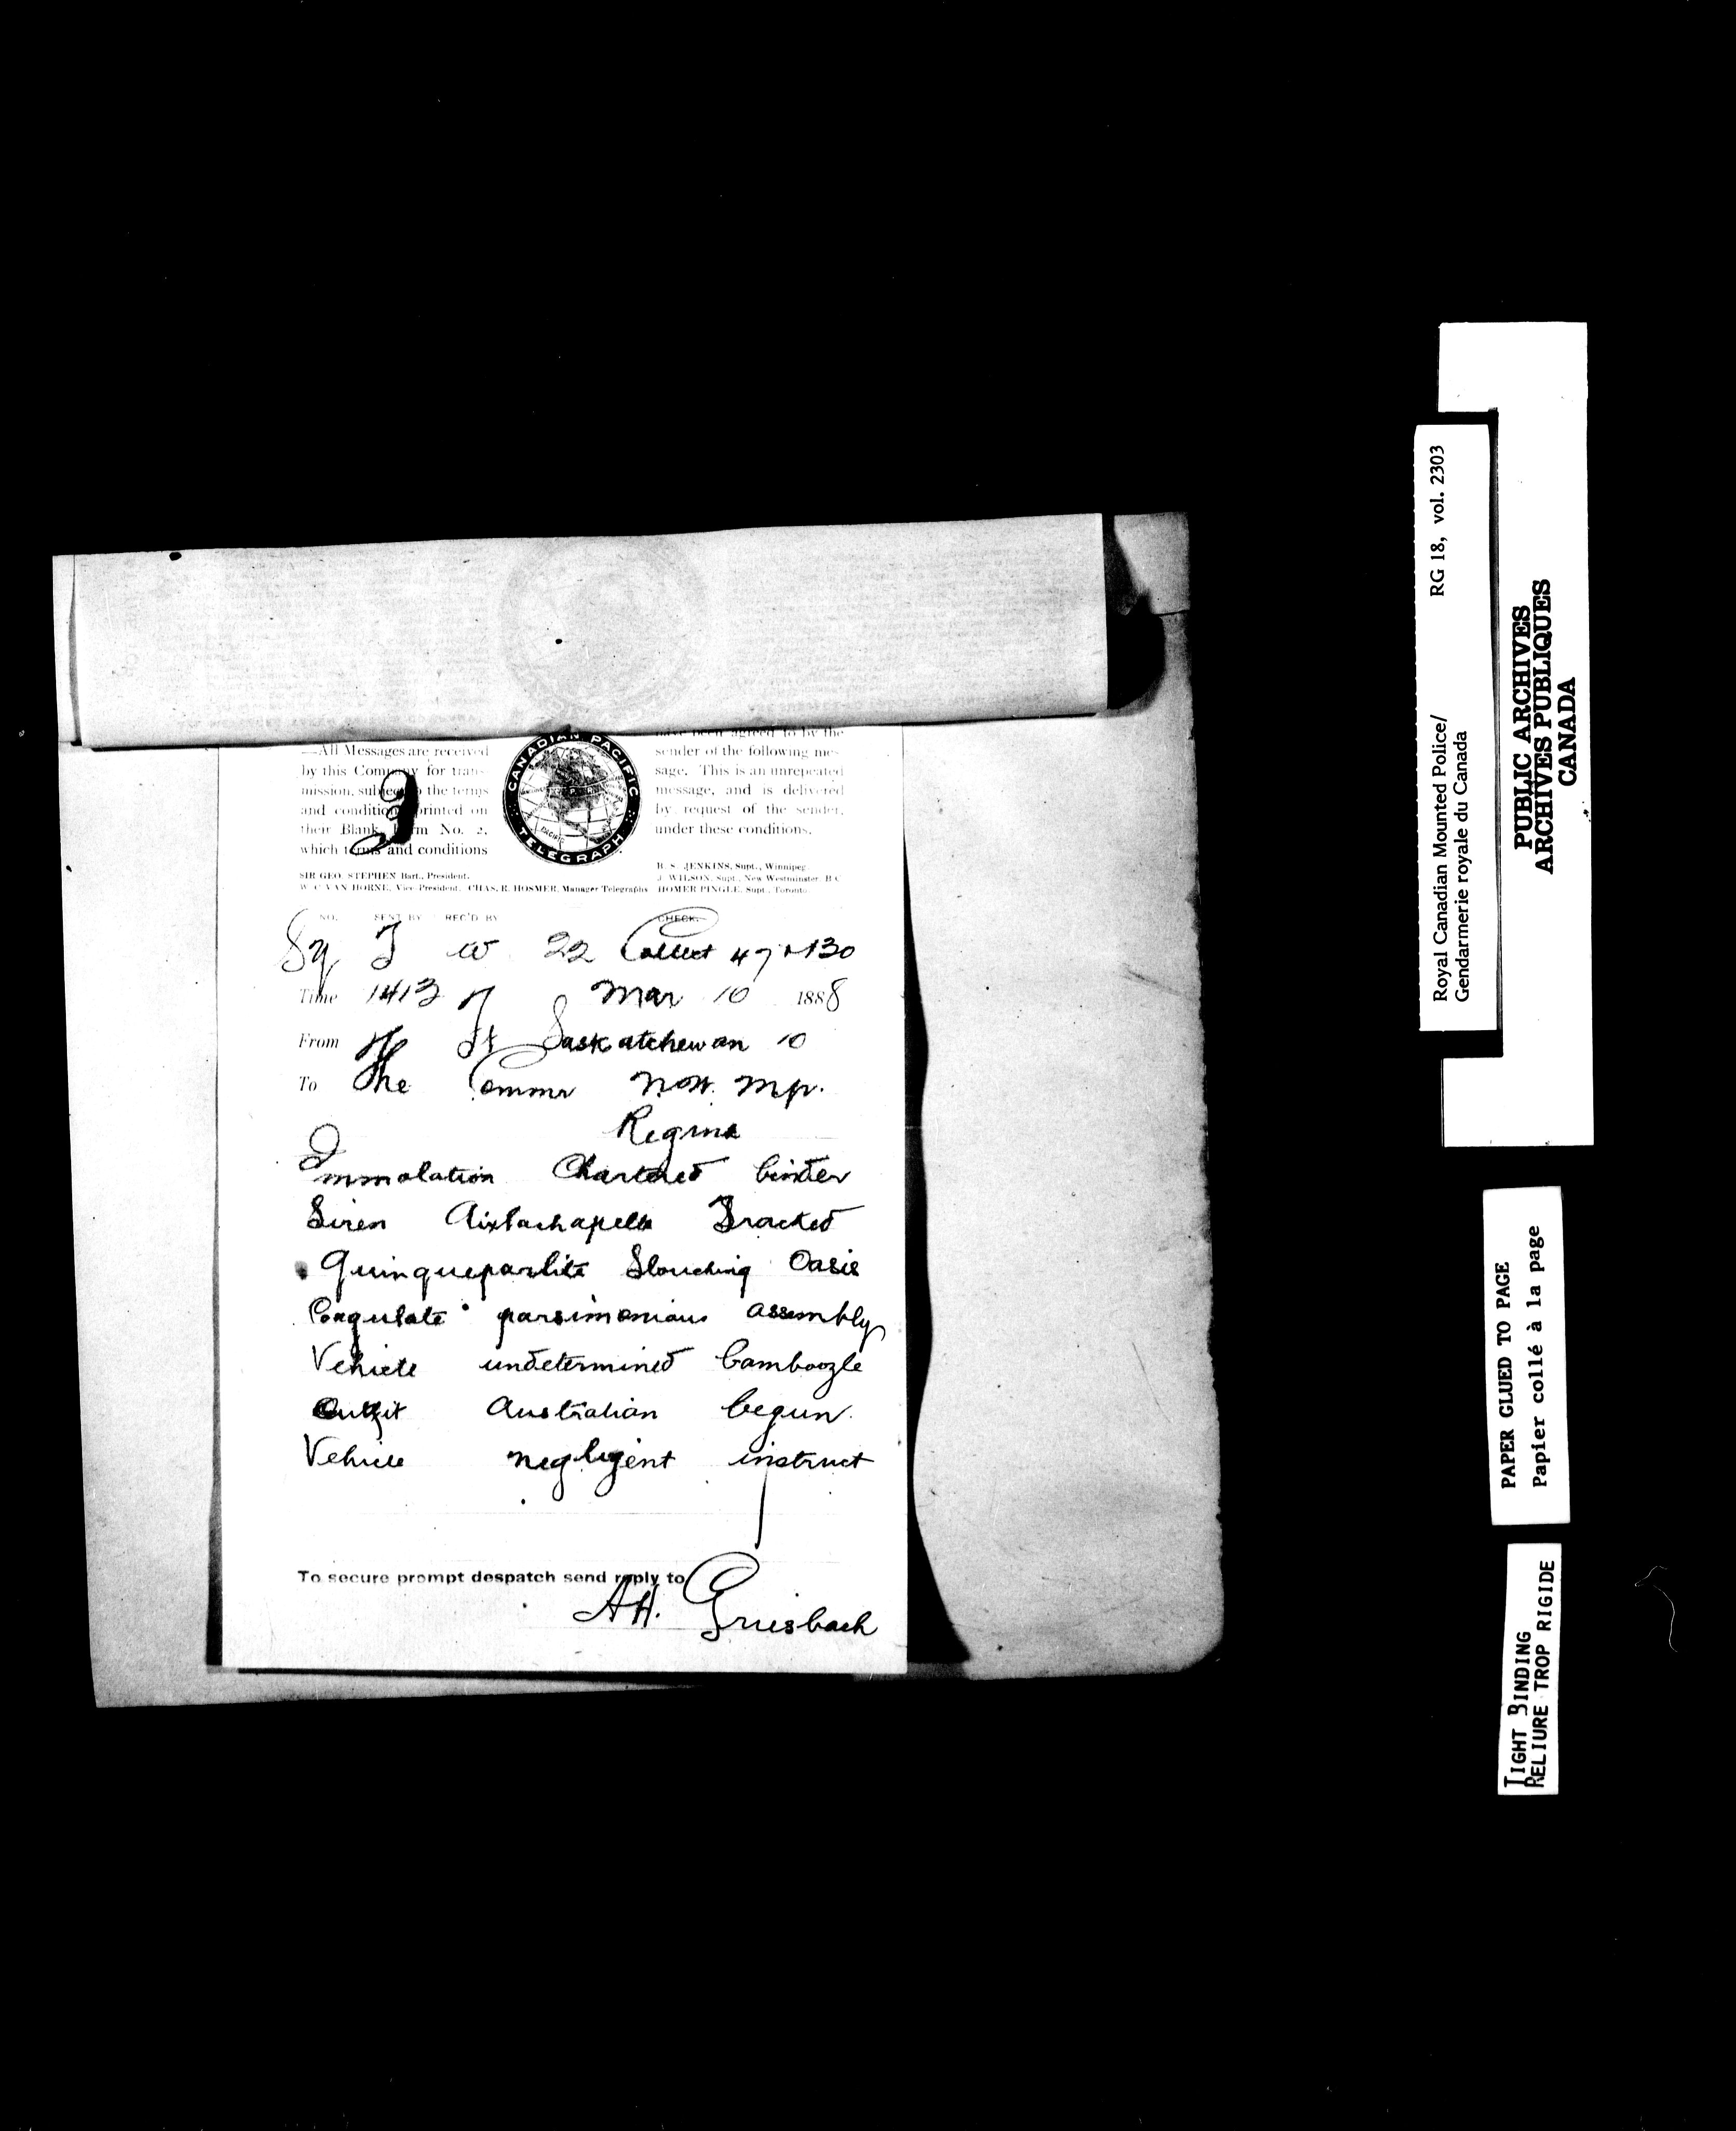 —All Messages are received
by this Company for trans-
mission, subject to the terms
and conditions printed on
their Blank Form No. 2,
which terms and conditions
CANADIAN PACIFIC
TELEGRAPH
have been agreed to by the
sender of the following mes-
sage. This is an unrepeated
message, and is delivered
by request of the sender,
under these conditions.
SIR GEO. STEPHEN Bart., President.
W. C. VAN HORNE, Vice President. CHAS. R. HOSMER, Manager Telegraphs
B. S. JENKINS, Supt., Winnipeg.
J. WILSON, Supt., New Westminster, B.C.
HOMER PINGLE, Supt., Toronto.
NO. SENT BY REC'D BY CHECK.
22 Collect 47 130
Time Mar 10 1888
From Ft Saskatchewan 10
To The Commr N.W. M.P.
Regina
Immolation Chartered binder
Siren Aixlachapelle Bracked
Quinquepartite Slouching Oasis
Coagulate parsimonious assembly
Vehicle undetermined bamboozle
Outfit Australian begun
Vehicle negligent instruct
To secure prompt despatch send reply to
A H. Griesbach
Royal Canadian Mounted Police/ RG 18, vol. 2303
Gendarmerie royale du Canada
PUBLIC ARCHIVES
ARCHIVES PUBLIQUES
CANADA
PAPER GLUED TO PAGE
Papier collé à la page
TIGHT BINDING
RELIURE TROP RIGIDE